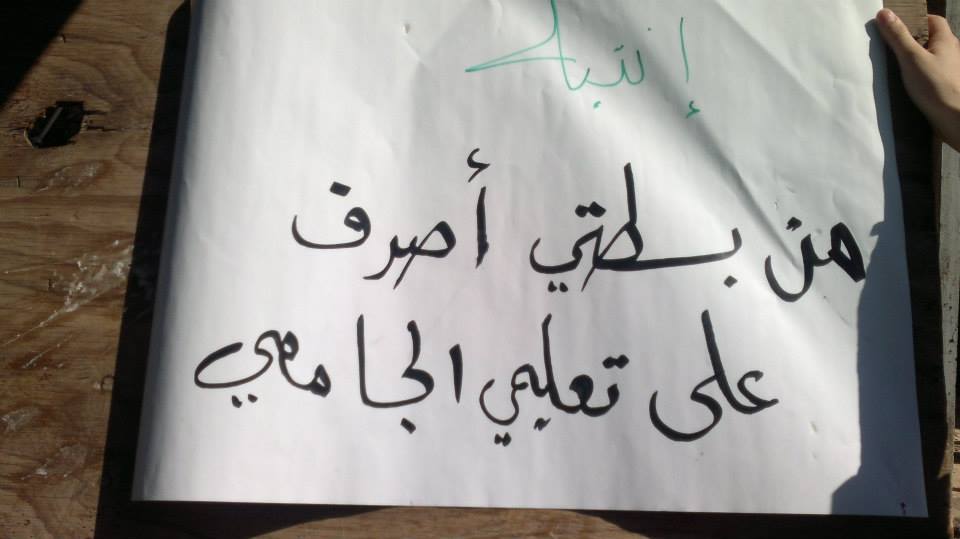 إنتباه
من بسطتي أصرف
على تعليمي الجامعي